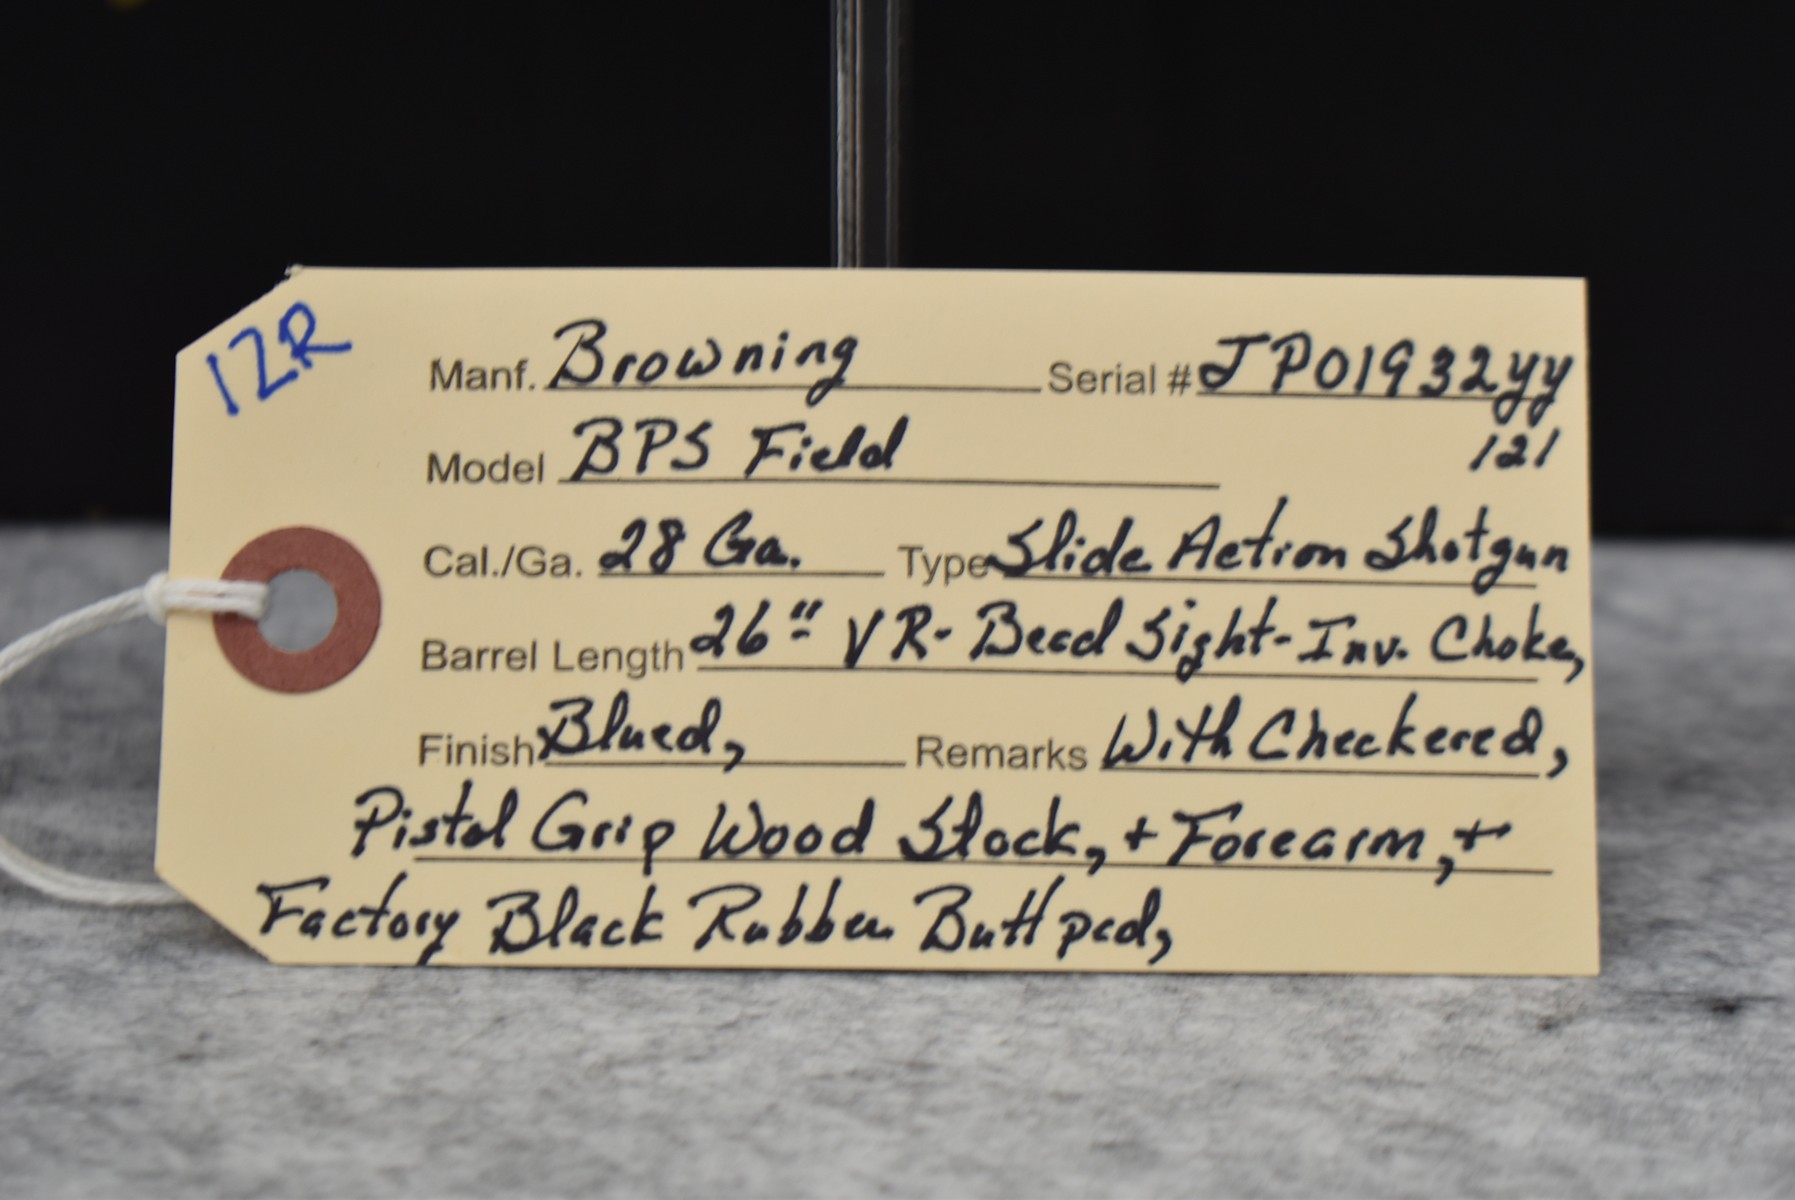 12R
Manf. Browning Serial # JP01932yy
Model BPS Field 121
Cal./Ga. 28 Ga. Type Slide Action Shotgun
Barrel Length 26" VR- Bead Sight- Inv. Choke,
Finish Blued, Remarks With Checkered,
Pistol Grip Wood Stock, + Forearm, +
Factory Black Rubber Butt pad,